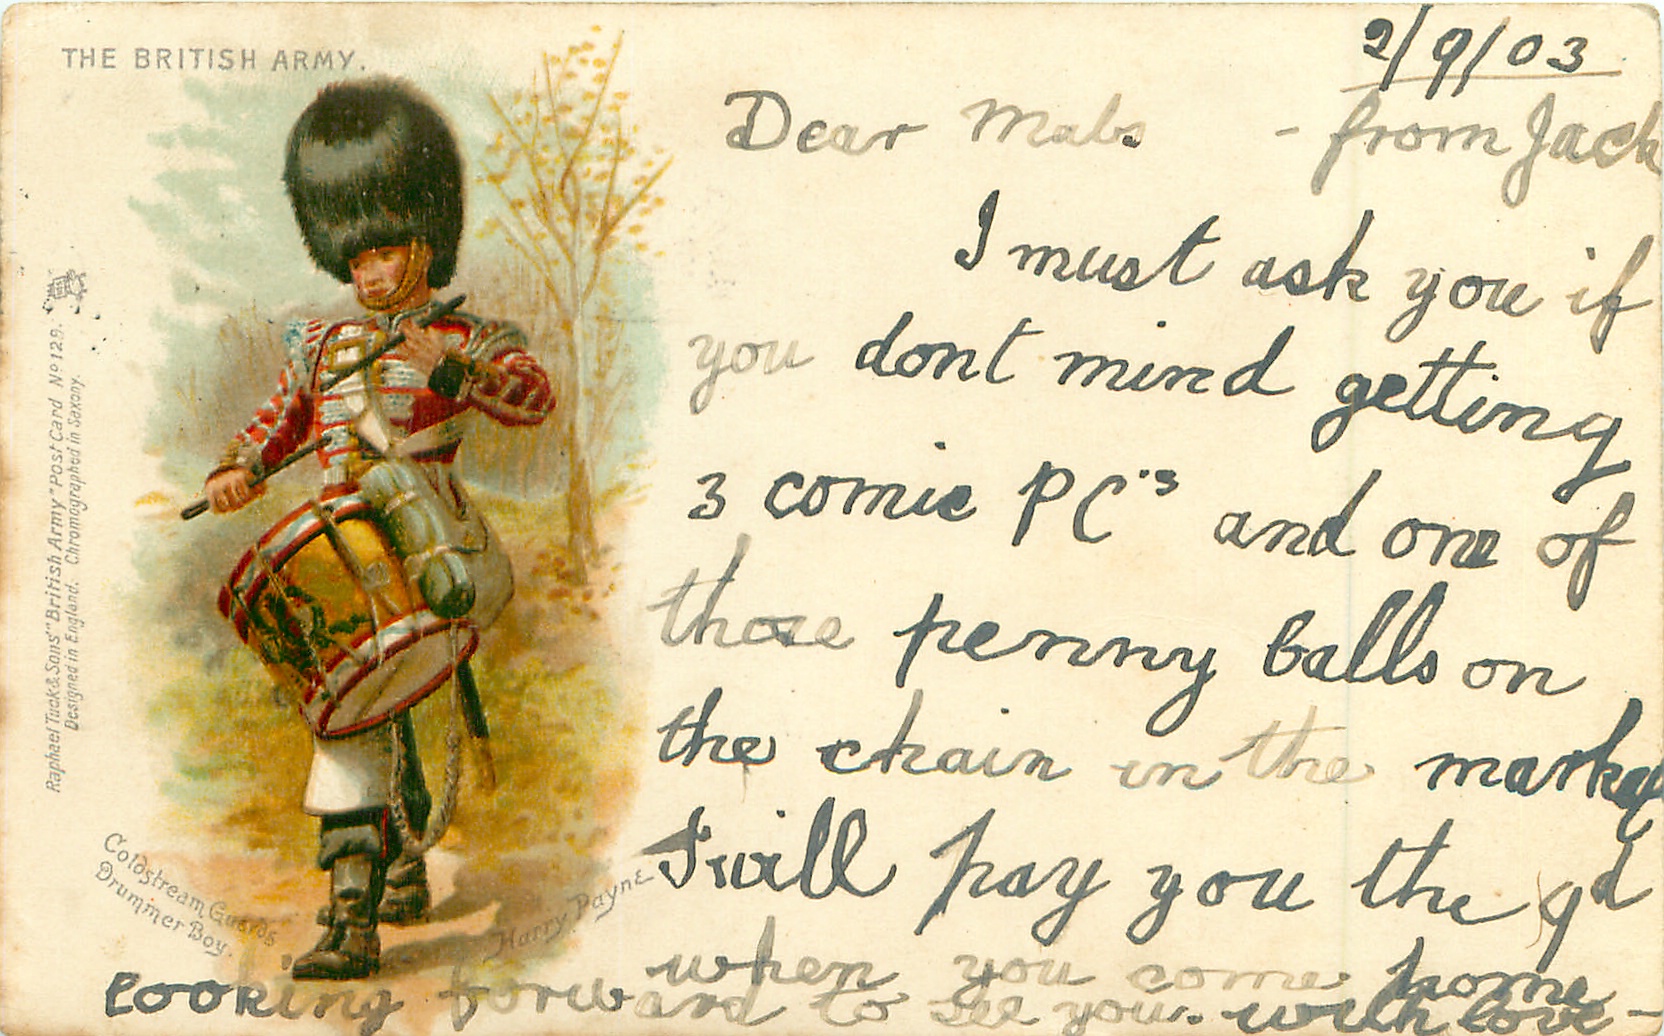 THE BRITISH ARMY.
2/9/03
Dear Mabs - from Jack
I must ask you if
you dont mind getting
3 comic PC's and one of
those penny balls on
the chain in the market
I will pay you the 9d
when you come home
looking forward to see you. with love -
Raphael Tuck & Sons' "British Army" Post Card No 129.
Designed in England. Chromographed in Saxony.
Coldstream Guards
Drummer Boy.
Harry Payne